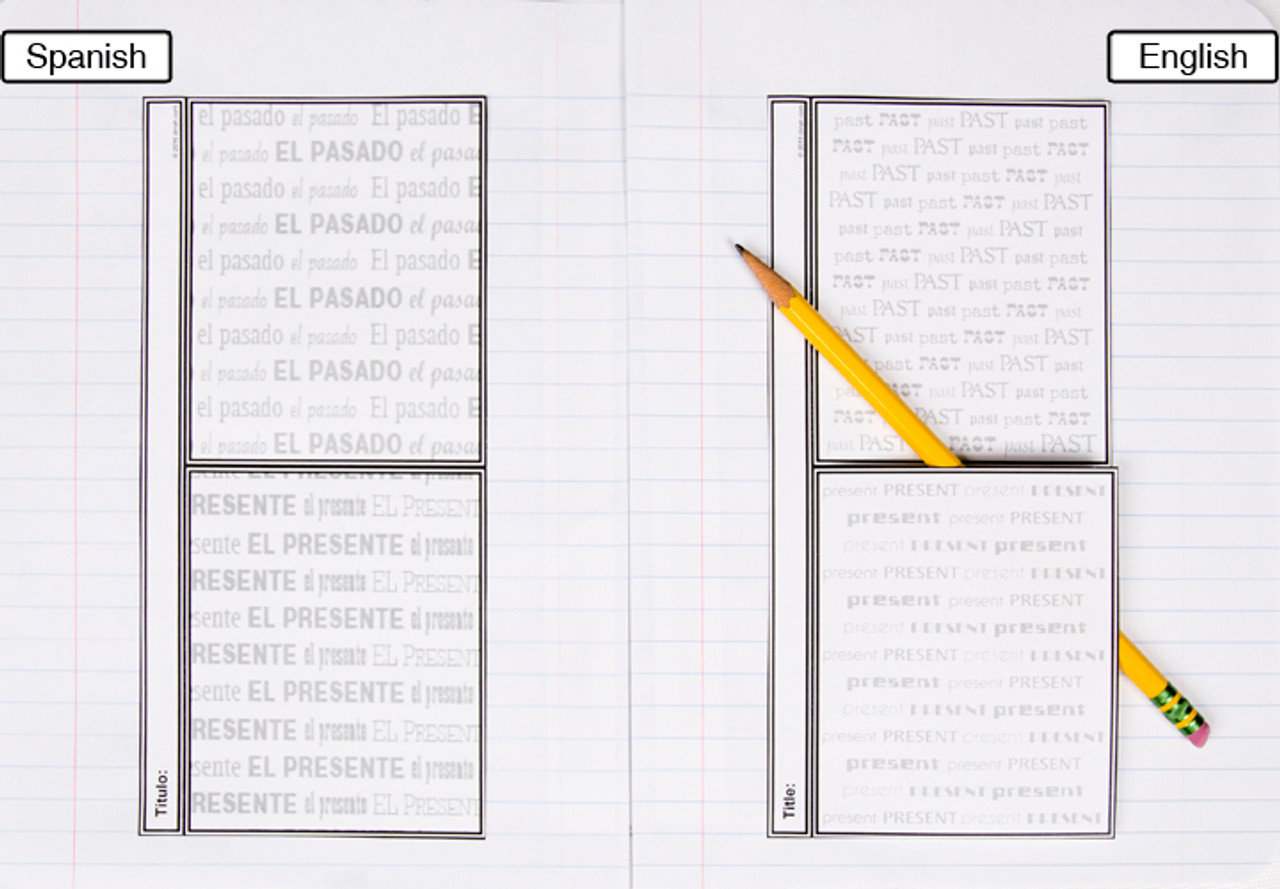 Spanish
English
el pasado el pasado El pasado E
el pasado EL PASADO el pasa
el pasado el pasado El pasado E
el pasado EL PASADO el pasa
el pasado el pasado El pasado E
el pasado EL PASADO el pasa
el pasado el pasado El pasado E
el pasado EL PASADO el pasa
el pasado el pasado El pasado E
el pasado EL PASADO el pasa
RESENTE el presente EL PRESENT
sente EL PRESENTE el presente
RESENTE el presente EL PRESENT
sente EL PRESENTE el presente
RESENTE el presente EL PRESENT
sente EL PRESENTE el presente
RESENTE el presente EL PRESENT
sente EL PRESENTE el presente
RESENTE el presente EL PRESENT
Título:
past PAST past PAST past past
PAST past PAST past past PAST
past PAST past past PAST past
PAST past past PAST past PAST
past past PAST past PAST past
past PAST past PAST past past
PAST past PAST past past PAST
past PAST past past PAST past
PAST past past PAST past PAST
past PAST past PAST past
PAST past PAST past past
PAST PAST past past PAST
past PAST PAST past PAST
present PRESENT present PRESENT
present present PRESENT
present PRESENT present
present PRESENT present PRESENT
present present PRESENT
present PRESENT present
present PRESENT present PRESENT
present present PRESENT
present PRESENT present
present PRESENT present PRESENT
present present PRESENT
present PRESENT present
present PRESENT present PRESENT
Title: